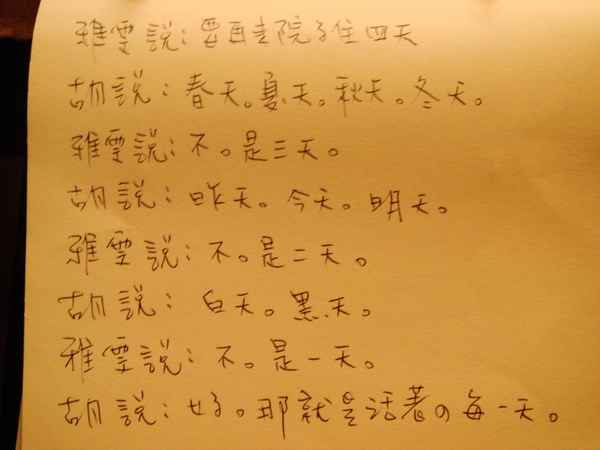 雅雯說：要院子住四天
胡說：春天。夏天。秋天。冬天。
雅雯說：不。是三天。
胡說：昨天。今天。明天。
雅雯說：不。是二天。
胡說：白天。黑天。
雅雯說：不。是一天。
胡說：好。那就是活著の每一天。